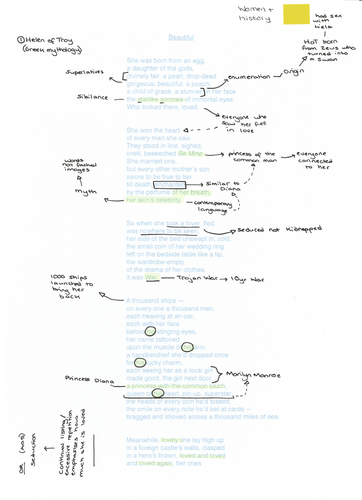 Women +
history
has sex
with
Leda
HOT born
from Zeus who
turned into
a swan
① Helen of Troy
(Greek mythology)
Beautiful
She was born from an egg,
a daughter of the gods,
divinely fair, a pearl, drop-dead
gorgeous, beautiful, a peach,
a child of grace, a stunner, in her face
the starlike sorrows of immortal eyes.
Who looked there, loved.
Superlatives
enumeration
Origin
Sibilance
everyone who
saw her fell
in love
She won the heart
of every man she saw.
They stood in line, sighed,
knelt, beseeched Be Mine.
She married one,
but every other mother's son
swore to be true to her
till death, enchanted
by the perfume of her breath,
her skin's celebrity.
princess of the
common man
everyone
connected
to her
words
not factual
images
myth
Similar to
Diana
contemporary
language
So when she took a lover, fled,
was nowhere to be seen,
her side of the bed unslept in, cold,
the small coin of her wedding ring
left on the bedside table like a tip,
the wardrobe empty
of the drama of her clothes,
it was War.
Seduced not kidnapped
1000 ships
launched to
bring her
back
Trojan War
10yr War
A thousand ships —
on every one a thousand men,
each heaving at an oar,
each with her face
before his stinging eyes,
her name tattooed
upon the muscle of his arm,
a handkerchief she'd dropped once
for his lucky charm,
each seeing her as a local girl
made good, the girl next door,
a princess with the common touch,
queen of his heart, pin-up, superstar,
the heads of every coin he'd tossed,
the smile on every note he'd bet at cards —
bragged and shoved across a thousand miles of sea.
Marilyn Monroe
Princess Diana
Continual listing/
excessive repetition
emphasise how
much she is loved
Seduction
(not)
Meanwhile, lovely she lay high up
in a foreign castle's walls, clasped
in a hero's brawn, loved and loved
and loved again, her cries